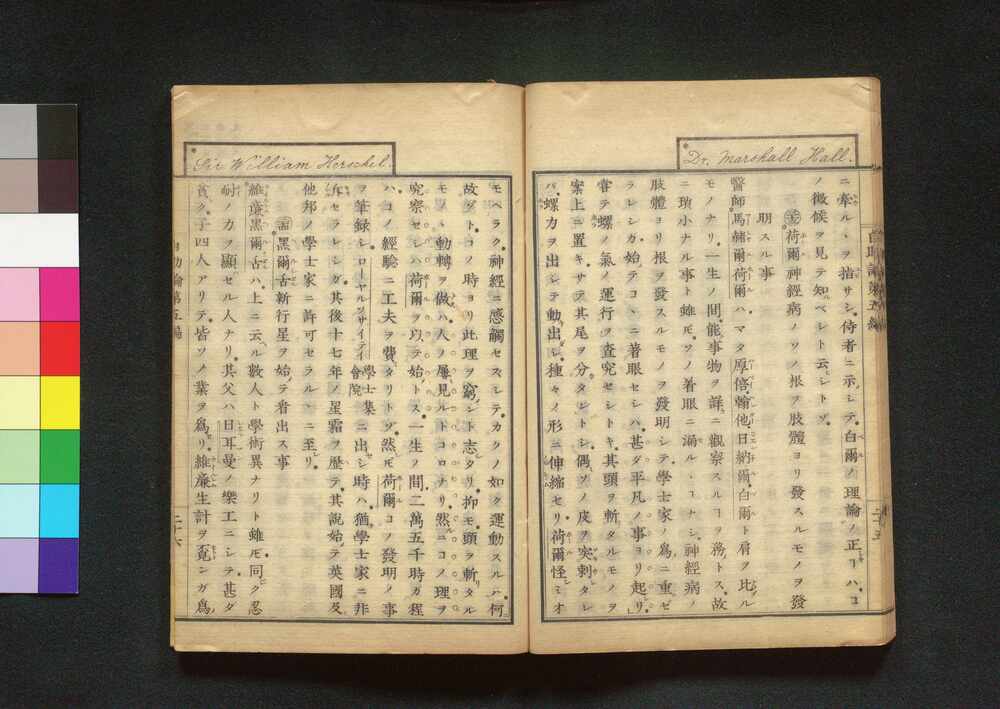 Dr. Marshall Hall.
ニ牽ルヽヲ指サシ侍者ニ示シテ白爾ノ理論ノ正ヿハコ
ノ徴候ヲ見テ知ベシト云シトゾ
荷爾神經病ノソノ根ヲ肢體ヨリ發スルモノヲ發
明スル事
醫師馬縇爾荷爾ハマタ厚倍翰他日納爾白爾ト肩ヲ比ル
モノナリ一生ノ間能事物ヲ詳ニ觀察スルヿヲ務トス故
ニ瑣小ナル事ト雖𪜈ソノ着眼ニ漏ルヽコナシ神經病ノ
肢體ヨリ根ヲ發スルモノヲ發明シテ學士家ノ爲ニ重ゼ
ラレシガ始テコヽニ著眼セシハ甚ダ平凡ノ事ヨリ起リ
甞テ螺ノ氣ノ運行ヲ査究セシトキ其頭ヲ斬タルモノヲ
案上ニ置キサテ其尾ヲ分タントシ偶ソノ皮ヲ突刺タレ
バ螺力ヲ出シテ動出シ種々ノ形ニ伸縮セリ荷爾怪ミオ
自助論第五編
二十五
Sir William Herschel.
モヘラク神經ニ感觸セズシテカクノ如ク運動スルハ何
故ゾトコノ時ヨリ此理ヲ窮ント志タリ抑モ頭ヲ斬タル
モノヽ動轉ヲ做ハ人ノ屢見ルトコロナリ然ニコノ理ヲ
究察セシハ荷爾ヲ以テ始トス一生ノ間二萬五千時ガ程
ハコノ經驗ニ工夫ヲ費タリトゾ然𪜈荷爾コノ發明ノ事
ヲ筆録シローヤルソサイテイ學士集會院ニ出セシ時ハ猶學士家ニ非
斥セラレシガ其後十七年ノ星霜ヲ歴テ其説始テ英國及
他邦ノ學士家ニ許可セラルヽニ至リ
黑爾舌新行星ヲ始テ看出ス事
維廉黑爾舌ハ上ニ云ル數人ト學術異ナリト雖𪜈同ク忍
耐ノカヲ顯セル人ナリ其父ハ日耳曼ノ樂工ニシテ甚ダ
貧ク子四人アリテ皆ソノ業ヲ爲リ維廉生計ヲ覓ンガ爲
自助論第五編
二十六